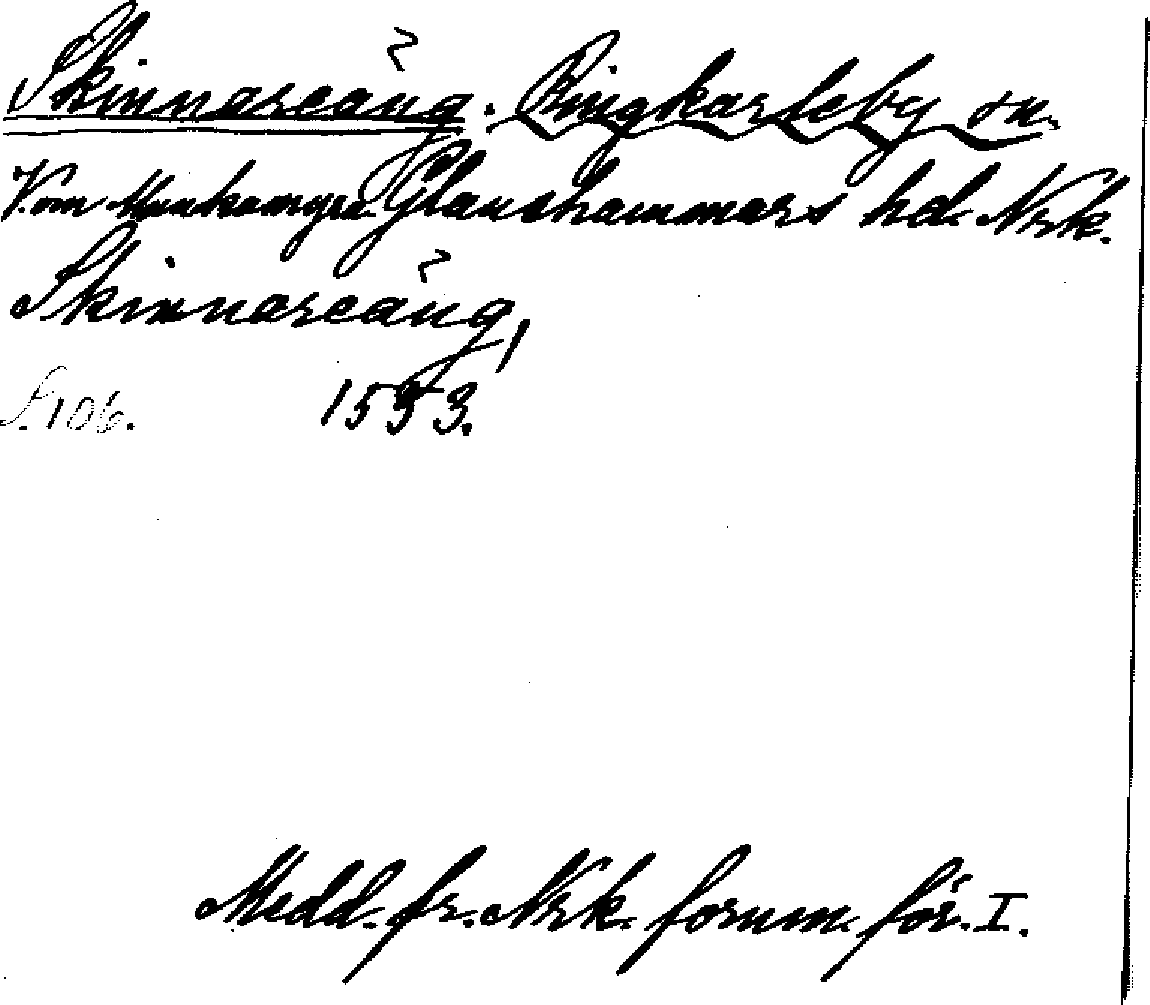 Skinnareäng. Ringkarleby sn.
V. om Munkeängen. Glanshammars hd. Nrk.
Skinnareäng,
S. 106. 1553.
Medd. fr. Nrk. fornm. för. I.